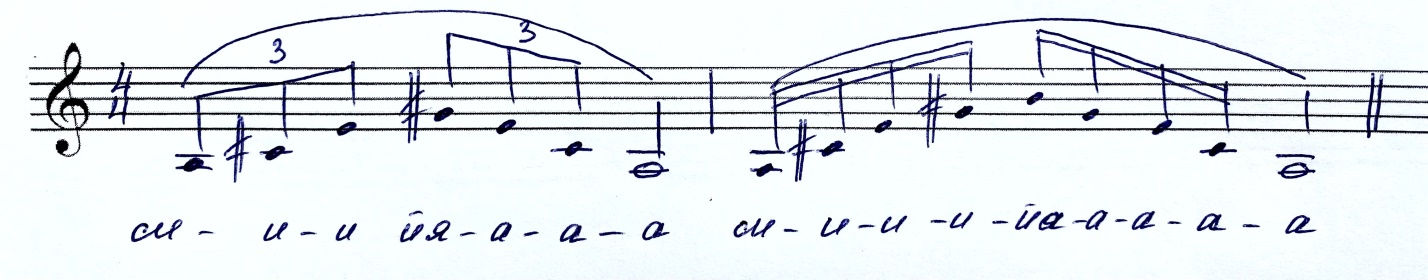 3 3
4
4
си - и - и йя - а - а - а си - и - и - и - йа - а - а - а - а